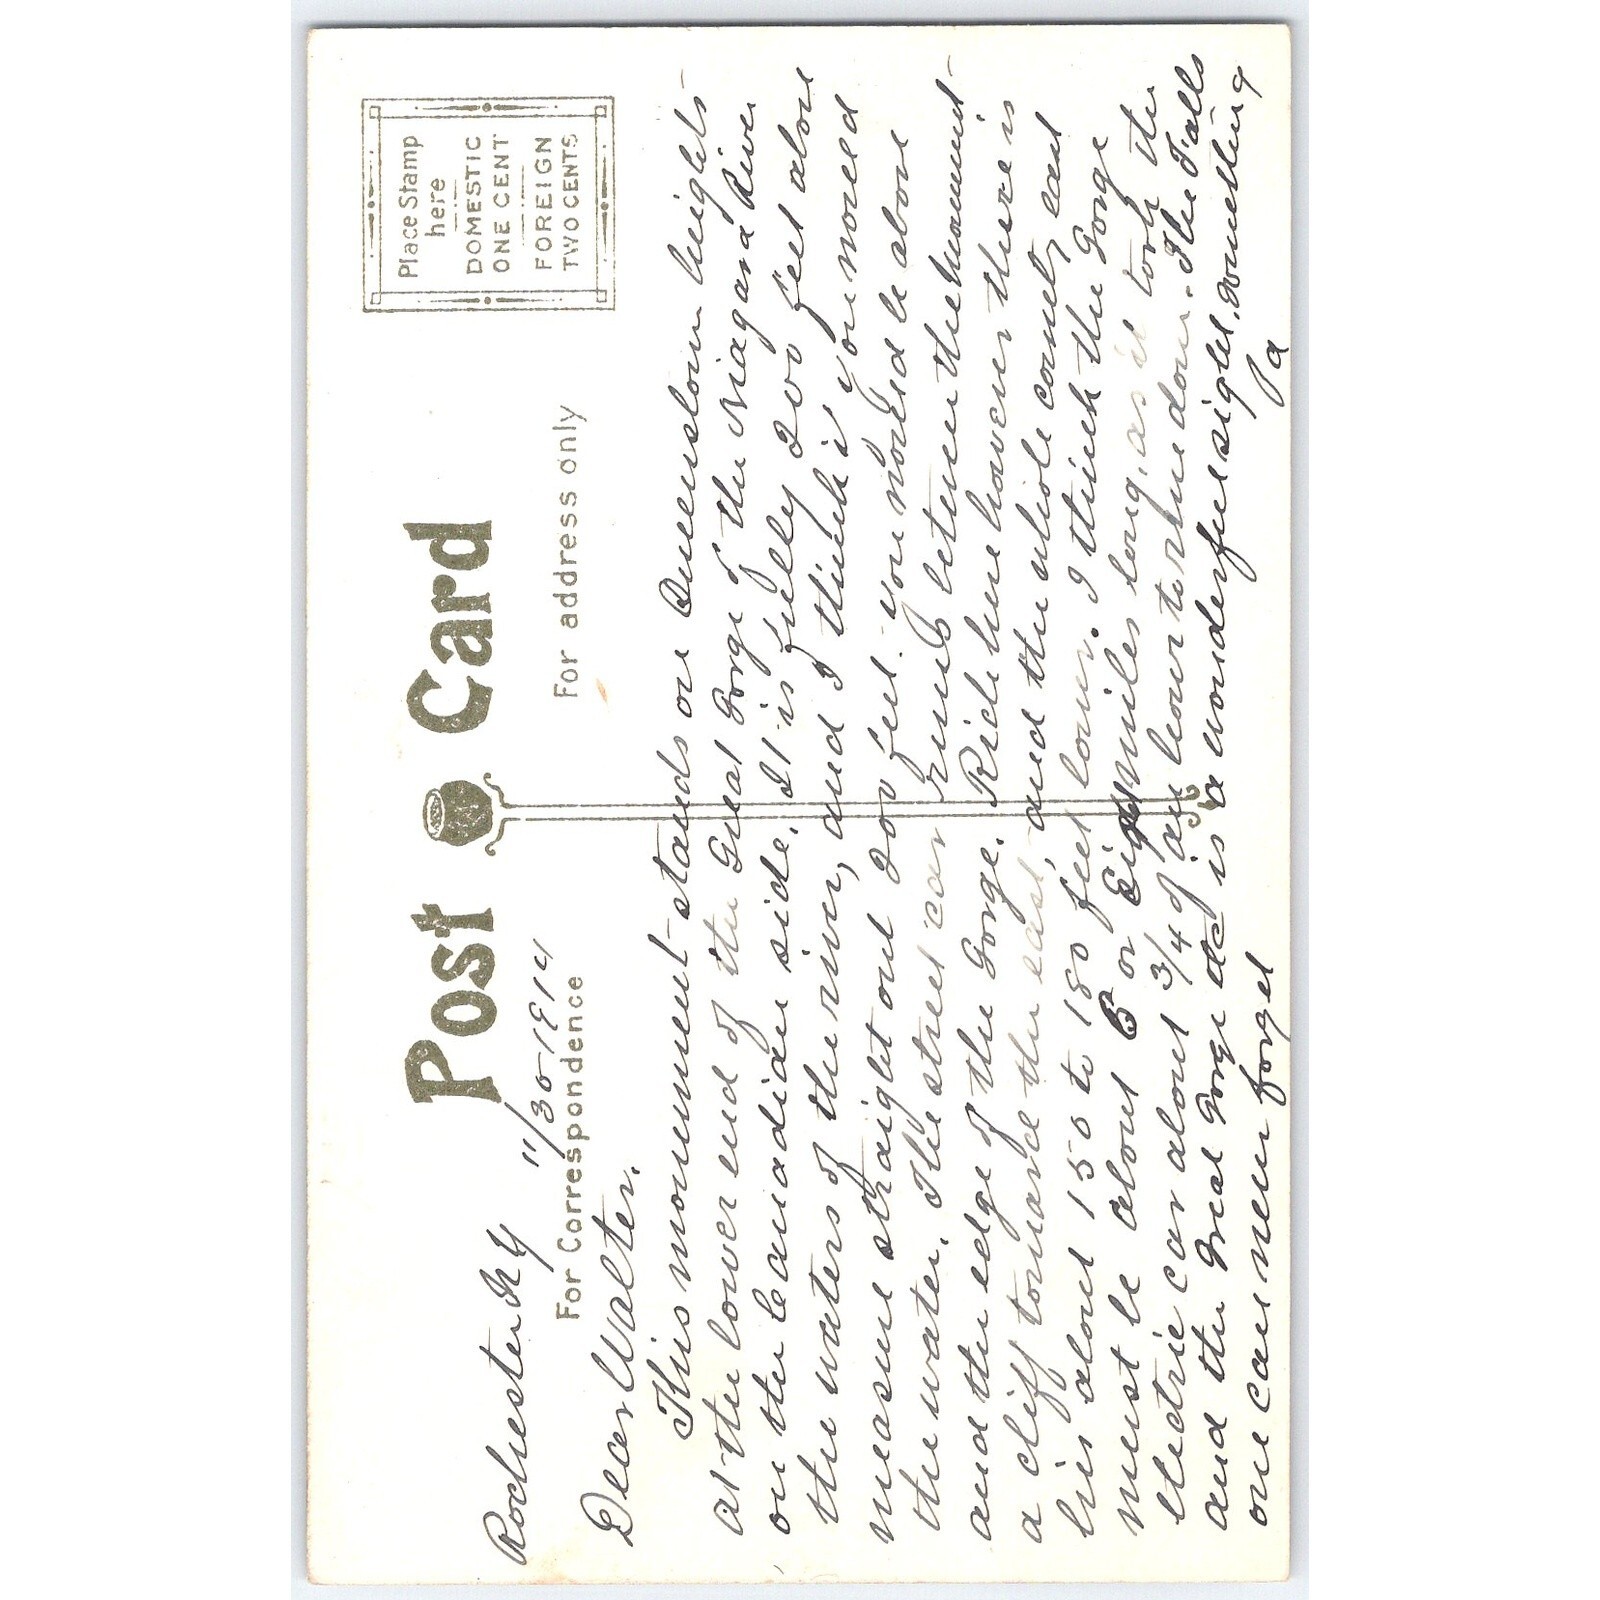 Post Card
Place Stamp
here
DOMESTIC
ONE CENT
FOREIGN
TWO CENTS
For Correspondence
For address only
Rochester NY 11/30-1914
Dear Walter.
This monument stands on Queenston heights
at the lower end of the Great Gorge of the Niagara River
on the Canadian side. It is fully 200 feet above
the waters of the river, and I think if you moved
measure straight out 200 feet you would be above
the water. The street car runs between the monument
and the edge of the Gorge. Right here however there is
a cliff towards the east, and the whole country east
lies about 150 to 180 feet lower. I think the Gorge
must be about 6 or Eight miles long, as it took the
electric car about 3/4 of an hour to run down. The Falls
and the Great Gorge etc is a wonderful sight, something
one can never forget
Pa